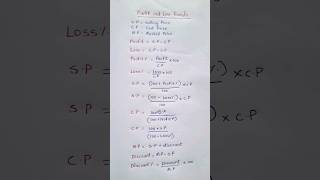 Profit and Loss Formula
S.P = Selling Price
C.P = Cost Price
M.P = Marked Price
Profit = S.P - C.P
Loss = C.P - S.P
Profit% = Profit/C.P × 100
Loss% = Loss × 100/C.P
S.P = (100 + Profit%)/100 × C.P
S.P = (100 - Loss%)/100 × C.P
C.P = 100 × S.P/(100 + Profit%)
C.P = 100 × S.P/(100 - Loss%)
M.P = S.P + Discount
Discount = M.P - S.P
Discount% = Discount/M.P × 100